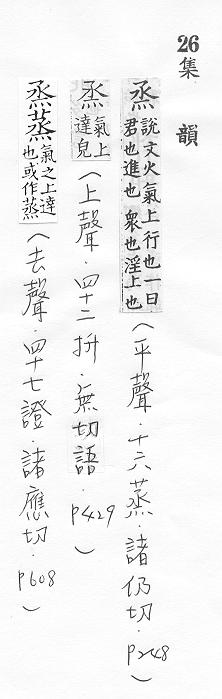 26 集韻
烝 說文火氣上行也一曰君也進也眾也淫上也(平聲.十六蒸諸仍切.P248)
烝 氣上達皃(上聲.四十二拼.無切語.P429)
烝蒸 氣之上達也或作蒸(去聲.四十七證.諸應切.P608)